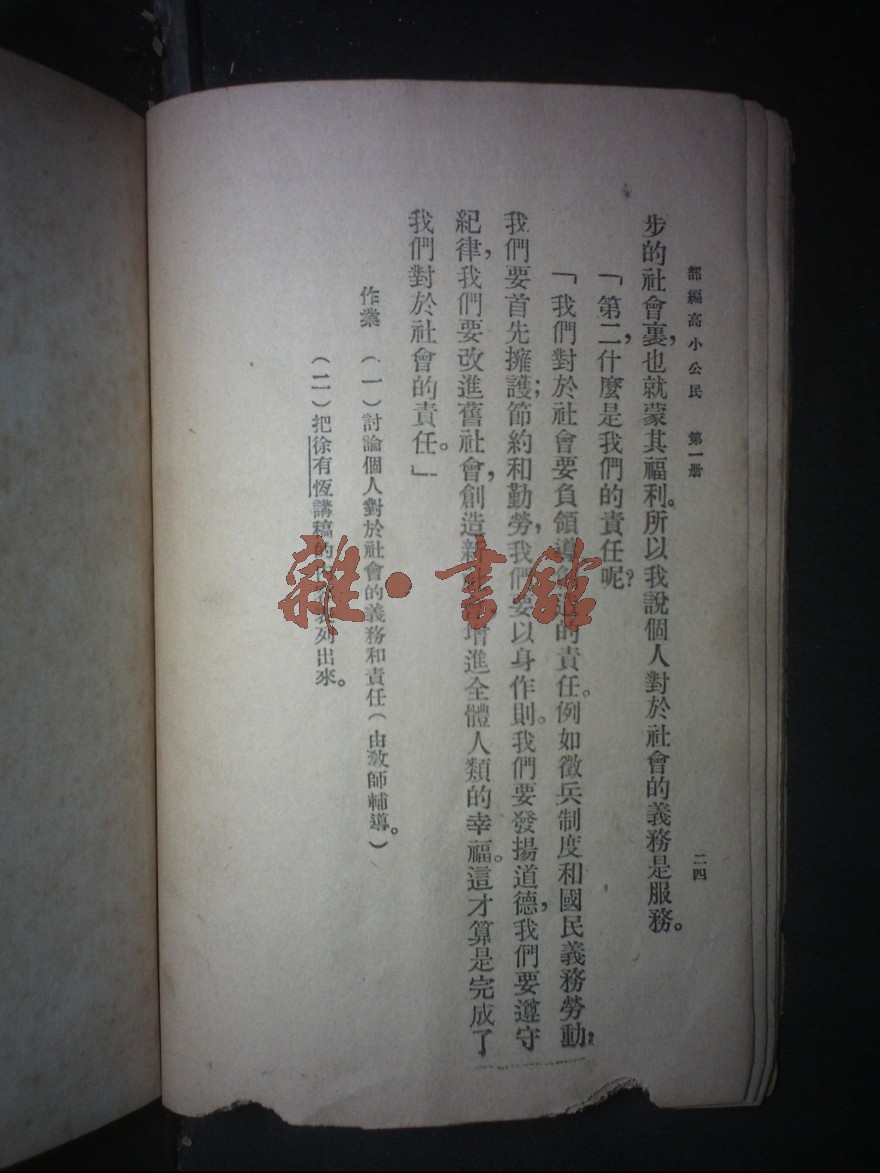 部編高小公民 第一册
二四
步的社會裏,也就蒙其福利。所以我說個人對於社會的義務是服務。
「第二,什麼是我們的責任呢?
「我們對於社會要負領導的責任。例如徵兵制度和國民義務勞動,
我們要首先擁護;節約和勤勞,我們要以身作則。我們要發揚道德,我們要遵守
紀律,我們要改進舊社會,創造新增進全體人類的幸福。這才算是完成了
我們對於社會的責任。」
作業 (一)討論個人對於社會的義務和責任(由教師輔導。)
(二)把徐有恆講稿的列出來。
雜·書館